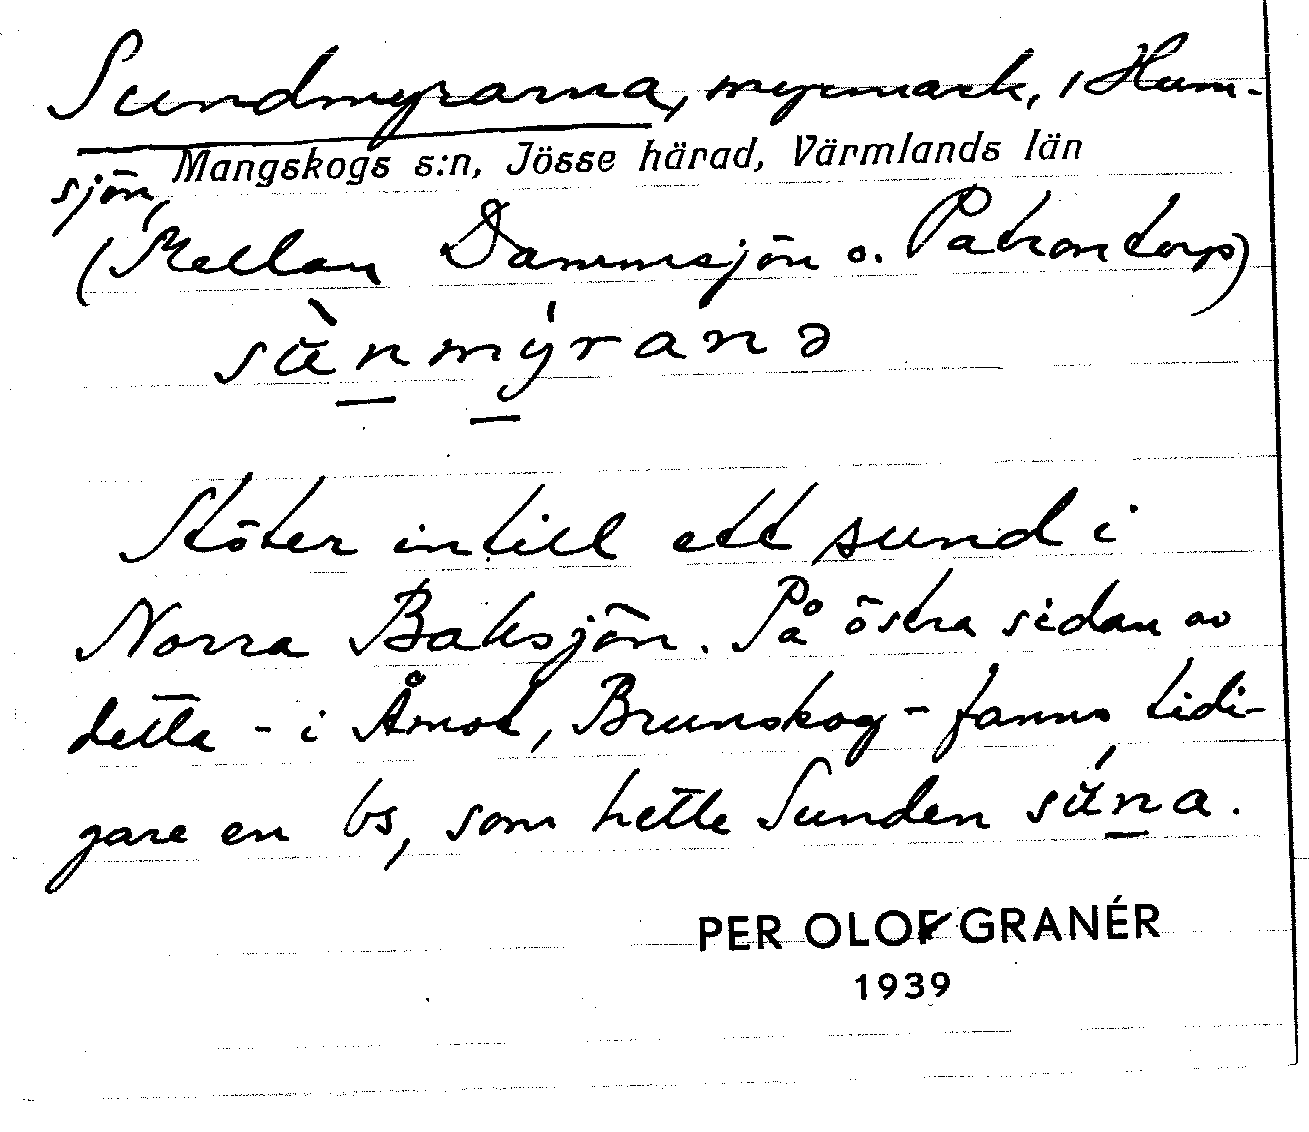 Sundmyrarna, myrmark, i Hum-
sjön, Mangskogs s:n, Jösse härad, Värmlands län
(Mellan Dammsjön o. Patrontorp)
sùnmýranə
Stöter intill ett sund i
Norra Baksjön. På östra sidan av
detta - i Åmot, Brunskog - fanns tidi-
gare en bs, som hette Sunden súna.
PER OLOF GRANÉR
1939